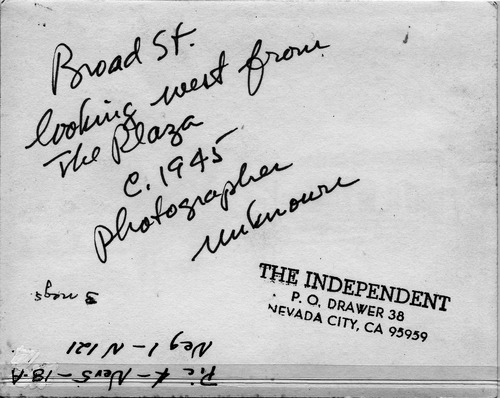 Broad St.
looking west from
The Plaza
c. 1945
photographer
unknown
THE INDEPENDENT
P. O. DRAWER 38
NEVADA CITY, CA 95959
3 negs
Neg 1 - N 121
Pic K - Nev5 - 18-A